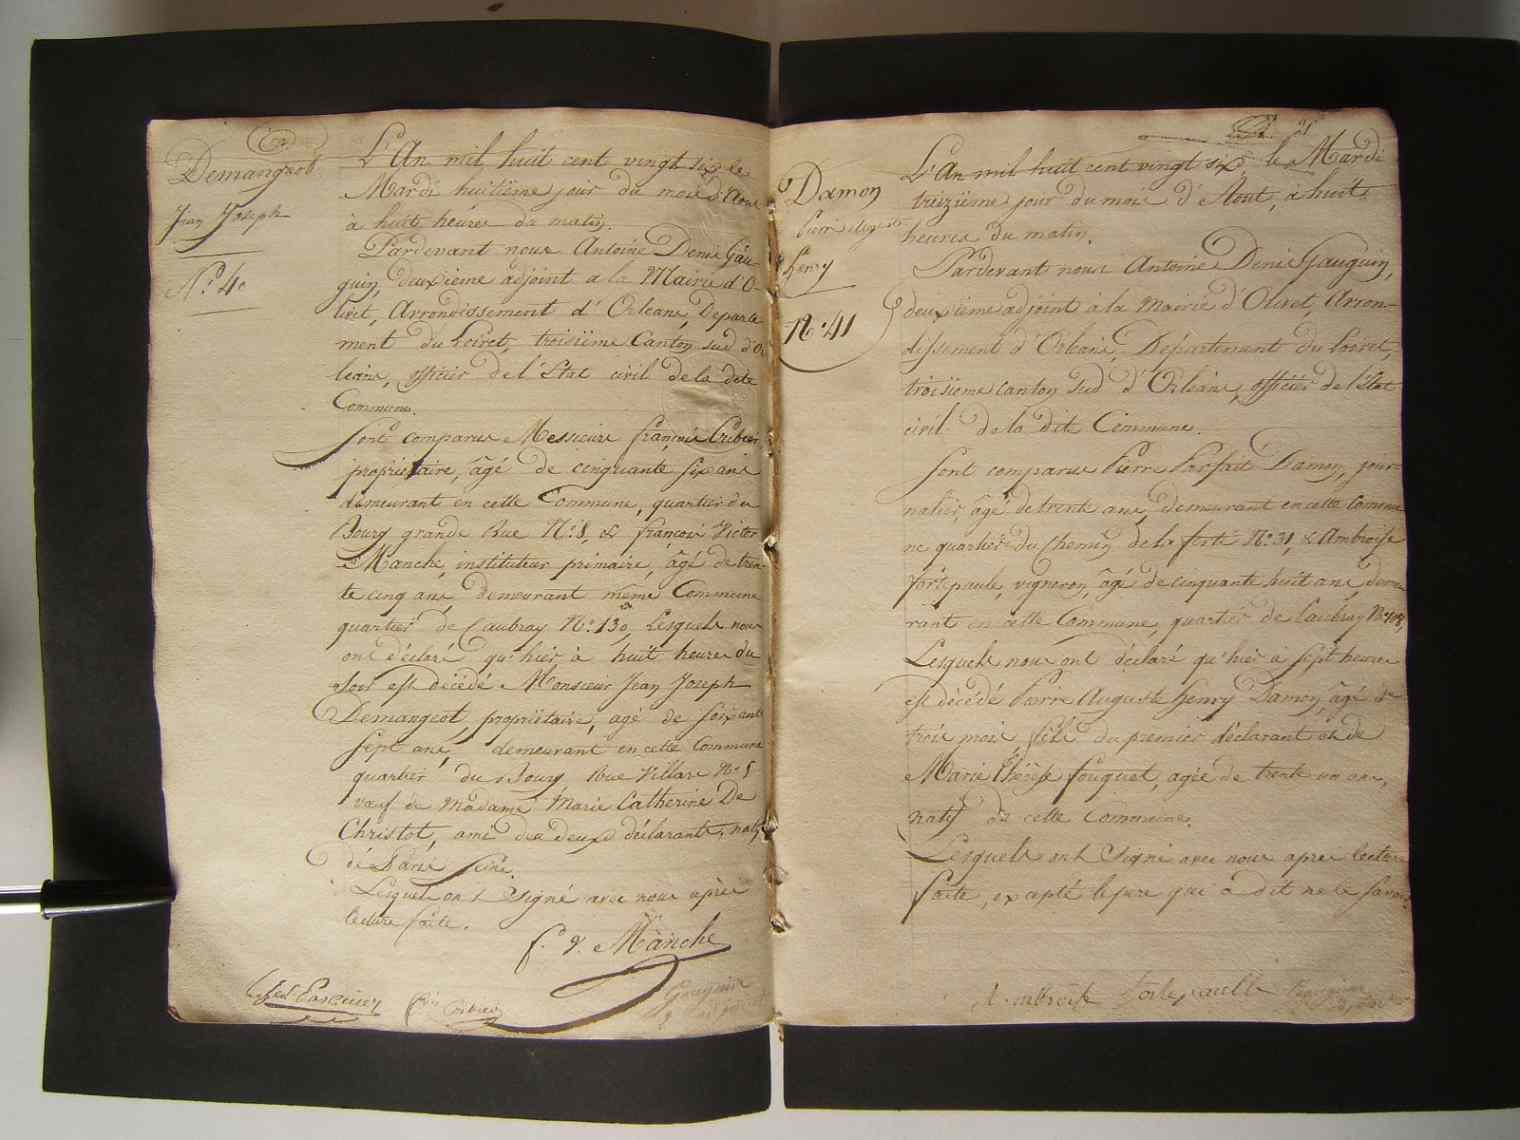 Demangeot
Jean Joseph
N.° 40
L'An mil huit cent vingt six le
Mardi huitième jour du mois d'Aout
à huit heures du matin.
Pardevant nous Antoine Denis Gau-
guin, deuxieme adjoint a la Mairie d'O-
livet, Arrondissement d'Orléans, Departe
ment du Loiret, troisiïeme Canton sud d'Or
leans, officier de l'Etat civil de la dite
Commune.
Sont comparus Messieurs françois
propriétaire, âgé de cinquante six ans
demeurant en cette Commune, quartier du
Bourg grande Rue N.° 8, & françois Victor
Manche, instituteur primaire, âgé de tren-
te cinq ans, demeurant même Commune
quartier de Caubray N.° 130, Lesquels nous
ont déclaré qu'hier à huit heures du
soir est décédé Monsieur Jean Joseph
Demangeot, propriétaire, agé de soixante
sept ans, demeurant en cette Commune
quartier du Bourg Rue Villars N.° 5
veuf de Madame Marie Catherine De
Christot, ami des deux déclarants, natif
de Paris Seine.
Lesquels ont Signé avec nous après
lecture faite.
f. v. Manche
Gauguin
Damon
Pierre August
henry
N.° 41
L'An mil huit cent vingt six, le Mardi
treiziïeme jour du mois d'Aout, à huit
heures du matin.
Pardevant nous Antoine Denis Gauguin,
deuxieme adjoint à la Mairie d'Olivet, Arron-
dissement d'Orléans, Département du Loiret,
troisiïeme canton Sud d'Orléans, officier de l'Etat
civil de la dite Commune.
Sont comparus Pierre Parfait Damon, jour-
nalier, âgé de trente ans, demeurant en cette Commu
ne quartier du Chemin de la ferté N.° 31, & Ambroise
fortepaule, vigneron, âgé de cinquante huit ans, demeu
rant en cette Commune, quartier de Caubray
Lesquels nous ont déclaré qu'hier à sept heures
est décédé Pierre Auguste henry Damon, âgé de
trois mois, fils du premier déclarant et de
Marie Thérèse fouquet, agée de trente un ans,
natif de cette Commune.
Lesquels ont Signé avec nous après lecture
faite, excepté le pere qui a dit ne le savoir.
Ambroise fortepaulle Gauguin